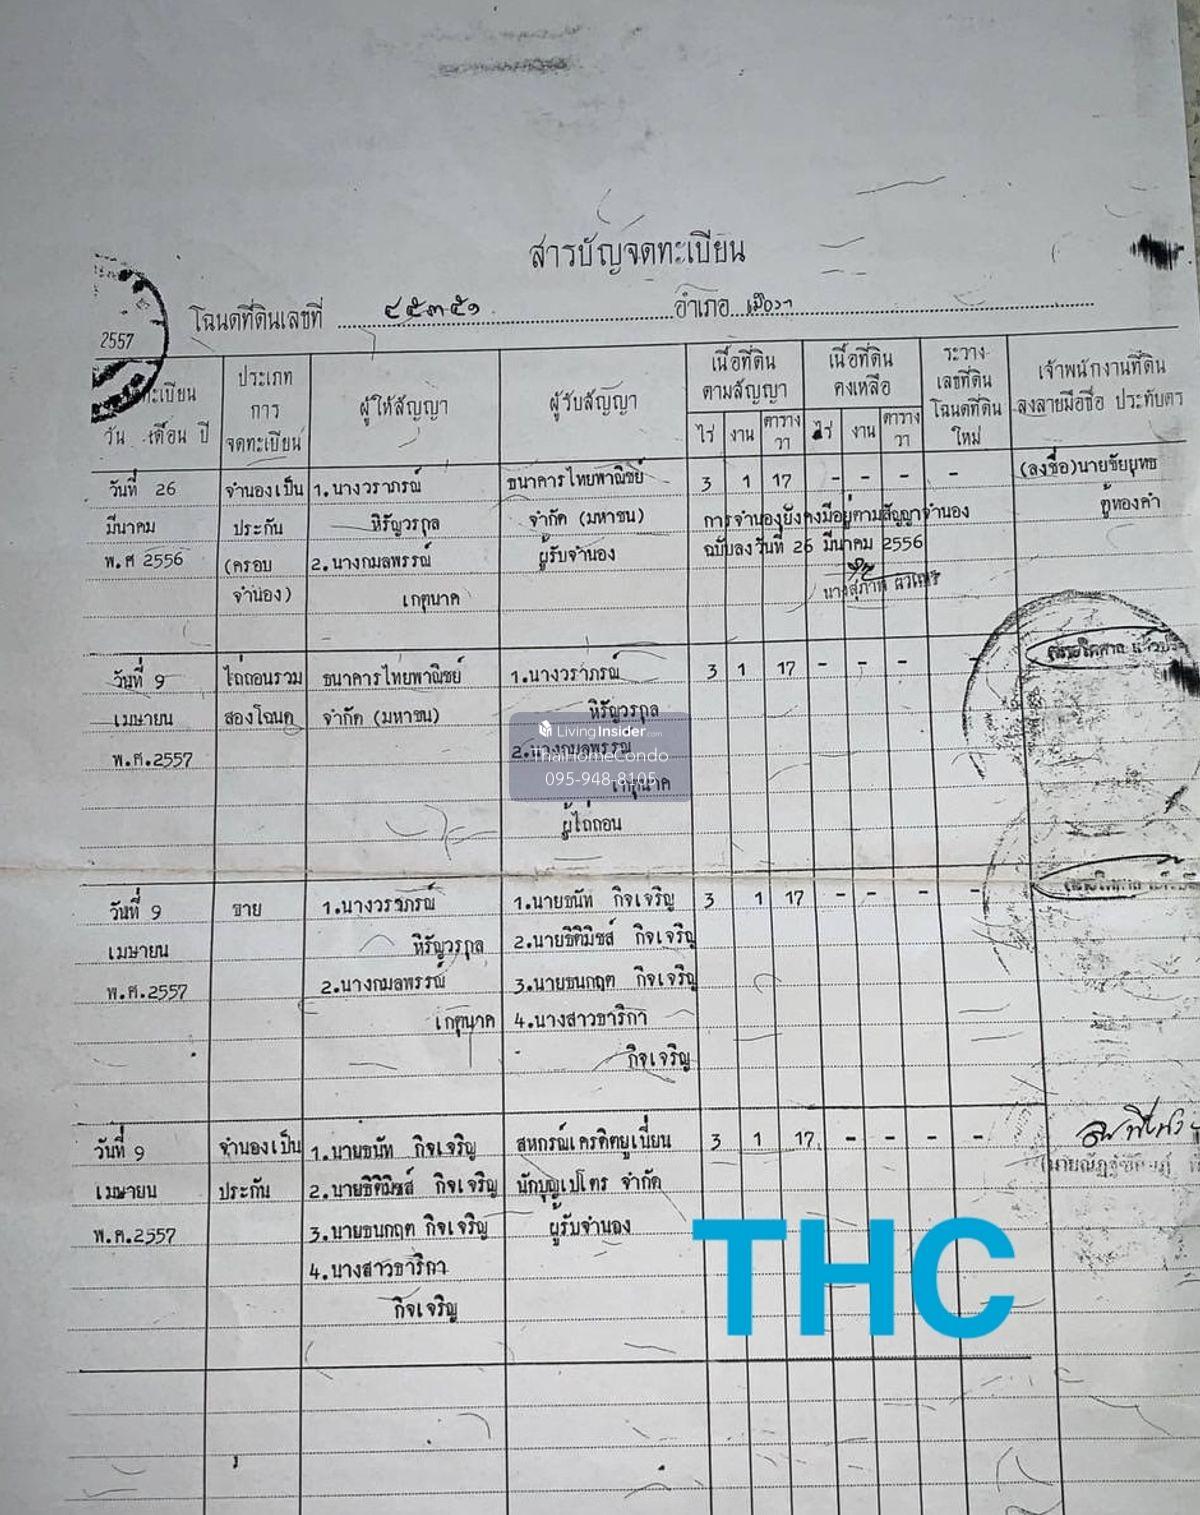 สารบัญจดทะเบียน
โฉนดที่ดินเลขที่ ๔๕๓๕๑ อำเภอ เมืองฯ
2557
ทะเบียน
วัน เดือน ปี
ประเภท
การ
จดทะเบียน
ผู้ให้สัญญา
ผู้รับสัญญา
เนื้อที่ดิน
ตามสัญญา
ไร่ งาน ตาราง
วา
เนื้อที่ดิน
คงเหลือ
ไร่ งาน ตาราง
วา
ระวาง
เลขที่ดิน
โฉนดที่ดิน
ใหม่
เจ้าพนักงานที่ดิน
ลงลายมือชื่อ ประทับตร
วันที่ 26 จำนองเป็น 1.นางวราภรณ์ ธนาคารไทยพาณิชย์ 3 1 17 - - - - (ลงชื่อ)นายชัยยุทธ
มีนาคม ประกัน หิรัญวรกุล จำกัด (มหาชน) การจำนองยังคงมีอยู่ตามสัญญาจำนอง คู้ทองคำ
พ.ศ 2556 (ครอบ 2.นางกมลพรรณ์ ผู้รับจำนอง ฉบับลงวันที่ 26 มีนาคม 2556
จำนอง) เกตุนาค นางสุภาพ
วันที่ 9 ไถ่ถอนรวม ธนาคารไทยพาณิชย์ 1.นางวราภรณ์ 3 1 17 - - - -
เมษายน สองโฉนด จำกัด (มหาชน) หิรัญวรกุล
LivingInsider.com
พ.ศ.2557 2.นางกมลพรรณ์
ThaiHomeCondo
095-948-8105
เกตุนาค
ผู้ไถ่ถอน
วันที่ 9 ขาย 1.นางวราภรณ์ 1.นายธนัท กิจเจริญ 3 1 17 - - - -
เมษายน หิรัญวรกุล 2.นายธิติมิชส์ กิจเจริญ
พ.ศ.2557 2.นางกมลพรรณ์ 3.นายธนกฤต กิจเจริญ
เกตุนาค 4.นางสาวธาริกา
กิจเจริญ
วันที่ 9 จำนองเป็น 1.นายธนัท กิจเจริญ สหกรณ์เครดิตยูเนี่ยน 3 1 17 - - - -
เมษายน ประกัน 2.นายธิติมิชส์ กิจเจริญ นักบุญเปโตร จำกัด
พ.ศ.2557 3.นายธนกฤต กิจเจริญ ผู้รับจำนอง
4.นางสาวธาริกา
กิจเจริญ
THC